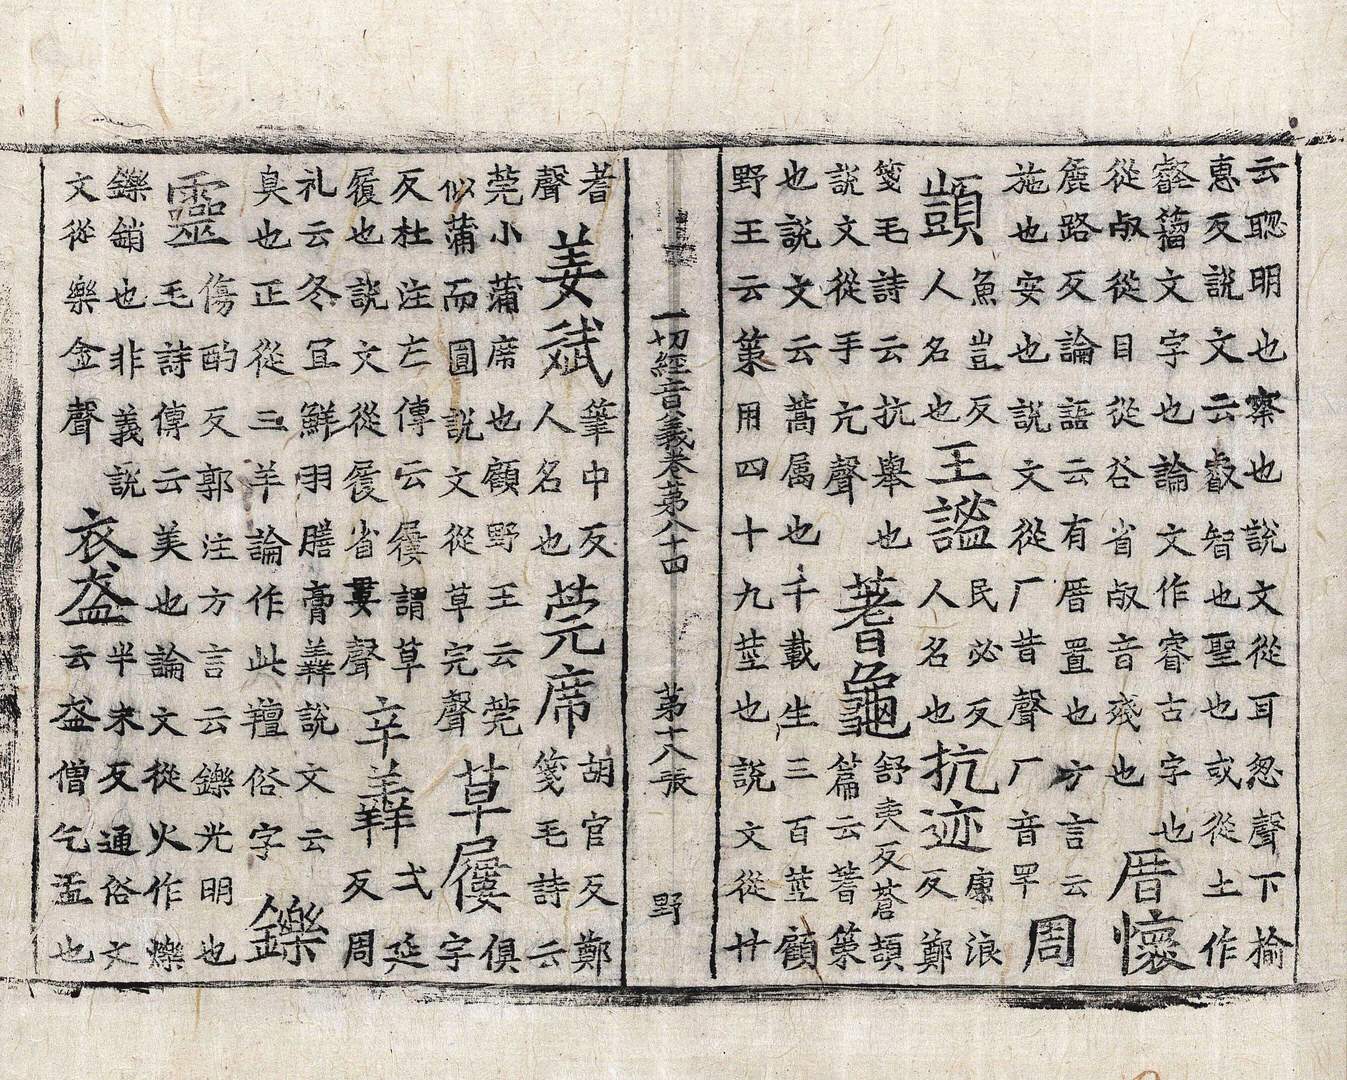 云聡明也察也說文從耳怱聲下榆
惠反說文云叡智也聖也或從土作
壡籀文字也論文作睿古字也
從𣦼從目從谷省𣦼音殘也
厝懷
麁路反論語云有厝置也方言云
施也安也說文從厂昔聲厂音罕
周
顗
魚豈反
人名也
王謐
民必反
人名也
抗迹
康浪
反鄭
箋毛詩云抗舉也
說文從手亢聲
蓍龜
舒夷反蒼頡
篇云蓍策
也說文云蒿属也千載生三百莖顧
野王云策用四十九莖也說文從廾
一切經音義卷第八十四 第十八張 野
耆
聲
姜斌
筆中反
人名也
莞席
胡官反鄭
箋毛詩云
莞小蒲席也顧野王云莞
似蒲而圓說文從草完聲
草屨
俱
宇
反杜注左傳云屨謂草
履也說文從履省婁聲
辛羴
式延
反周
礼云冬宜鮮羽膳膏羴說文云
臭也正從三羊論作此羶俗字
鑠
靈
傷酌反郭注方言云鑠光明也
毛詩傳云美也論文從火作爍
鑠銷也非義說
文從樂金聲
衣盋
半末反通俗文
云盋僧乞盂也